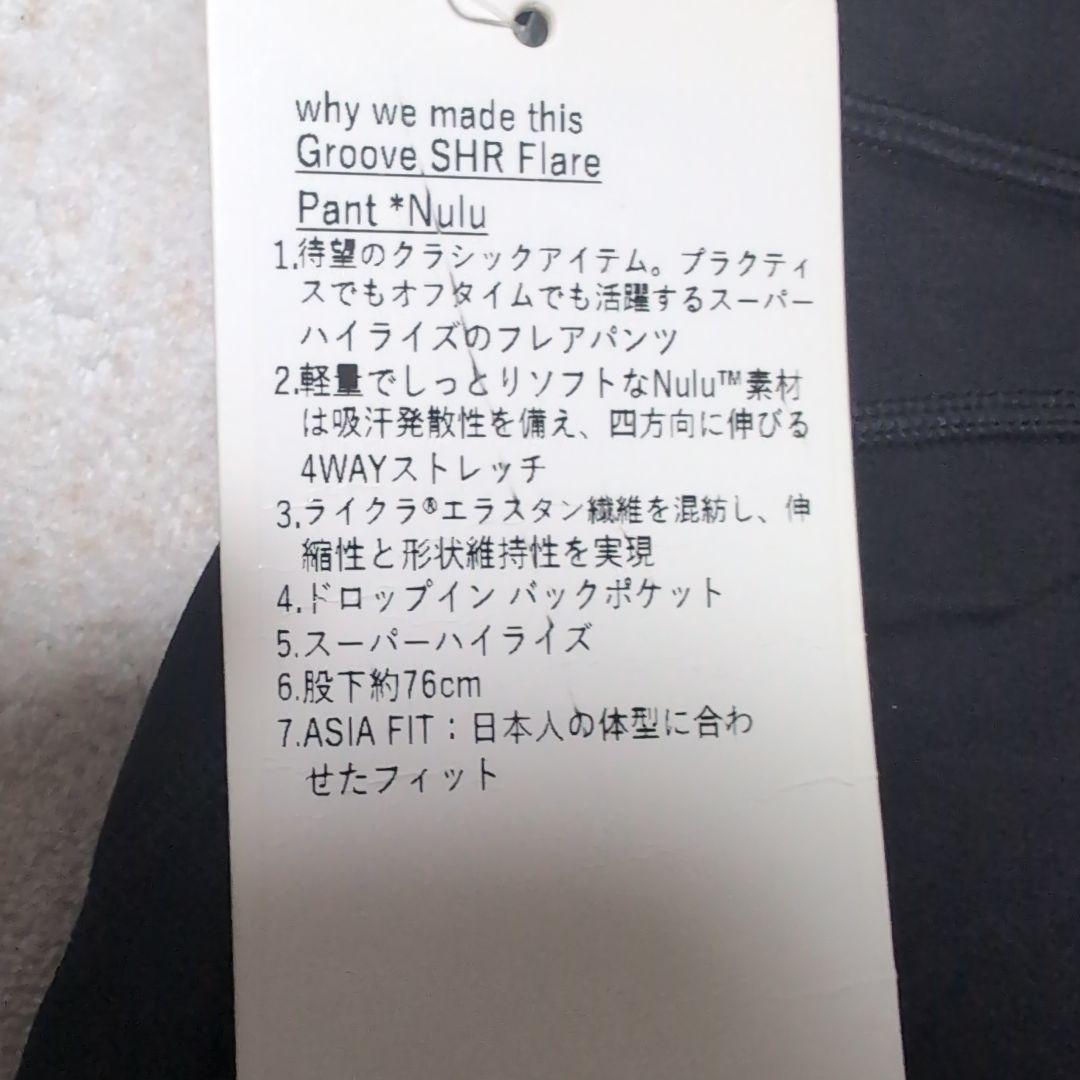 why we made this
Groove SHR Flare
Pant *Nulu
1.待望のクラシックアイテム。プラクティ
スでもオフタイムでも活躍するスーパー
ハイライズのフレアパンツ
2.軽量でしっとりソフトなNulu™素材
は吸汗発散性を備え、四方向に伸びる
4WAYストレッチ
3.ライクラ®エラスタン繊維を混紡し、伸
縮性と形状維持性を実現
4.ドロップイン バックポケット
5.スーパーハイライズ
6.股下約76cm
7.ASIA FIT：日本人の体型に合わ
せたフィット